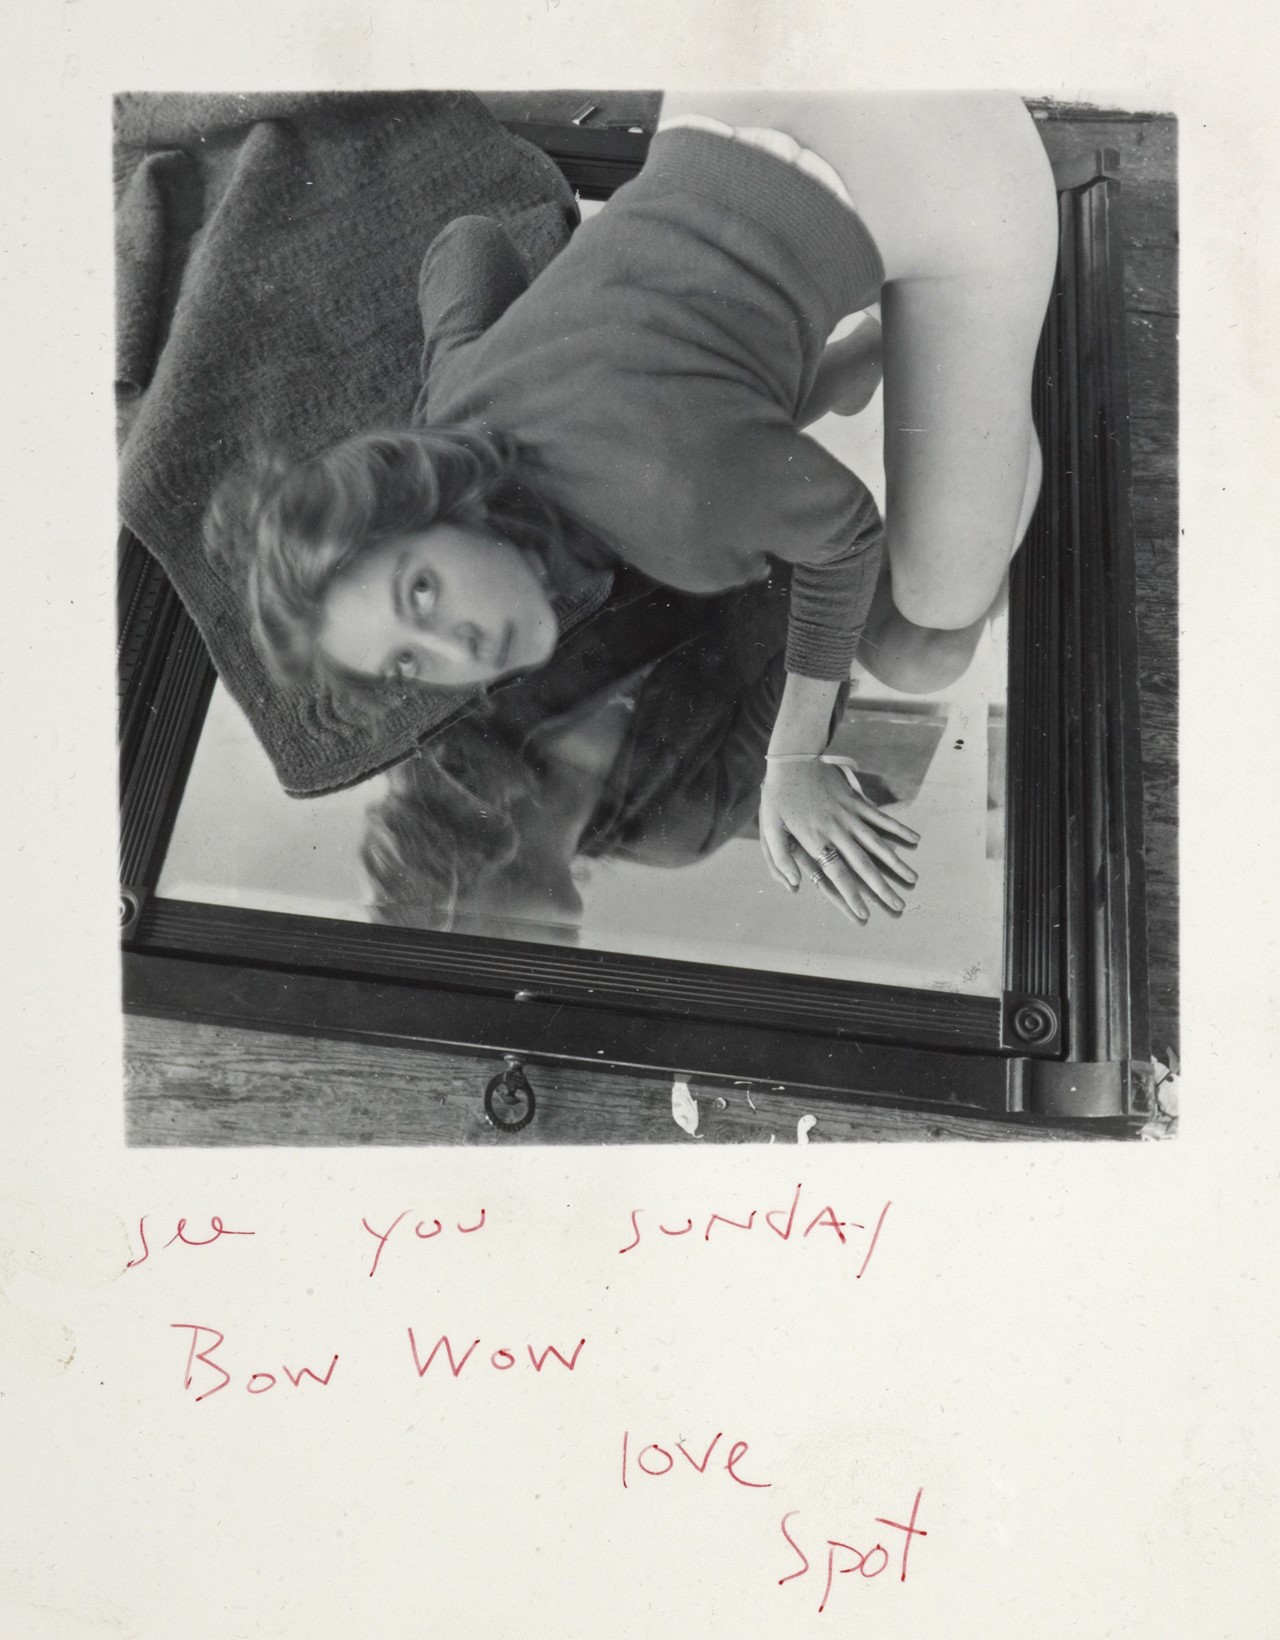 see you sunday
Bow Wow
love
Spot